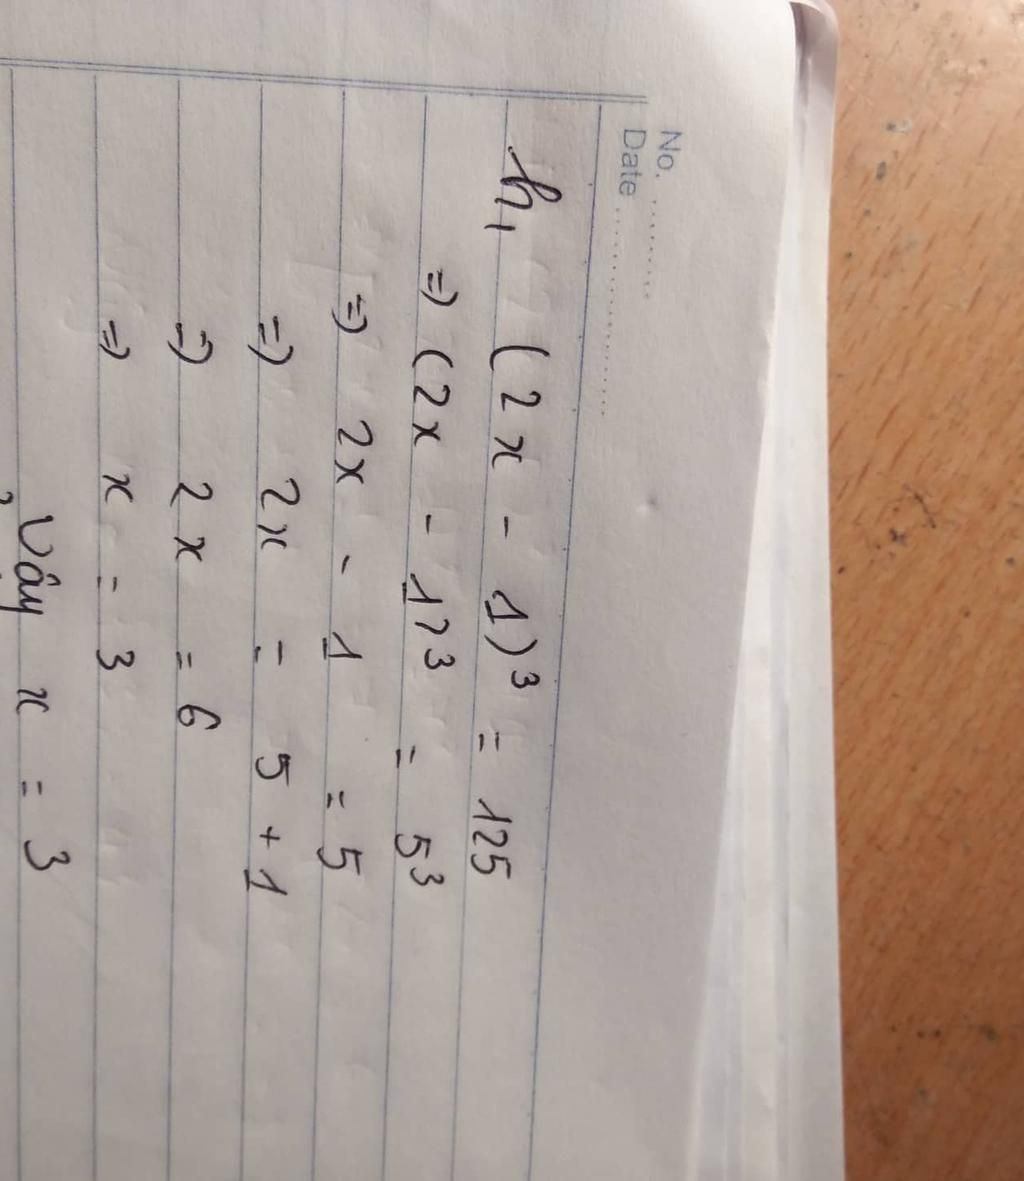 No. ............
Date ........................
h, (2x - 1)³ = 125
=> (2x - 1)³ = 5³
=> 2x - 1 = 5
=> 2x = 5 + 1
=> 2x = 6
=> x = 3
Vây x = 3